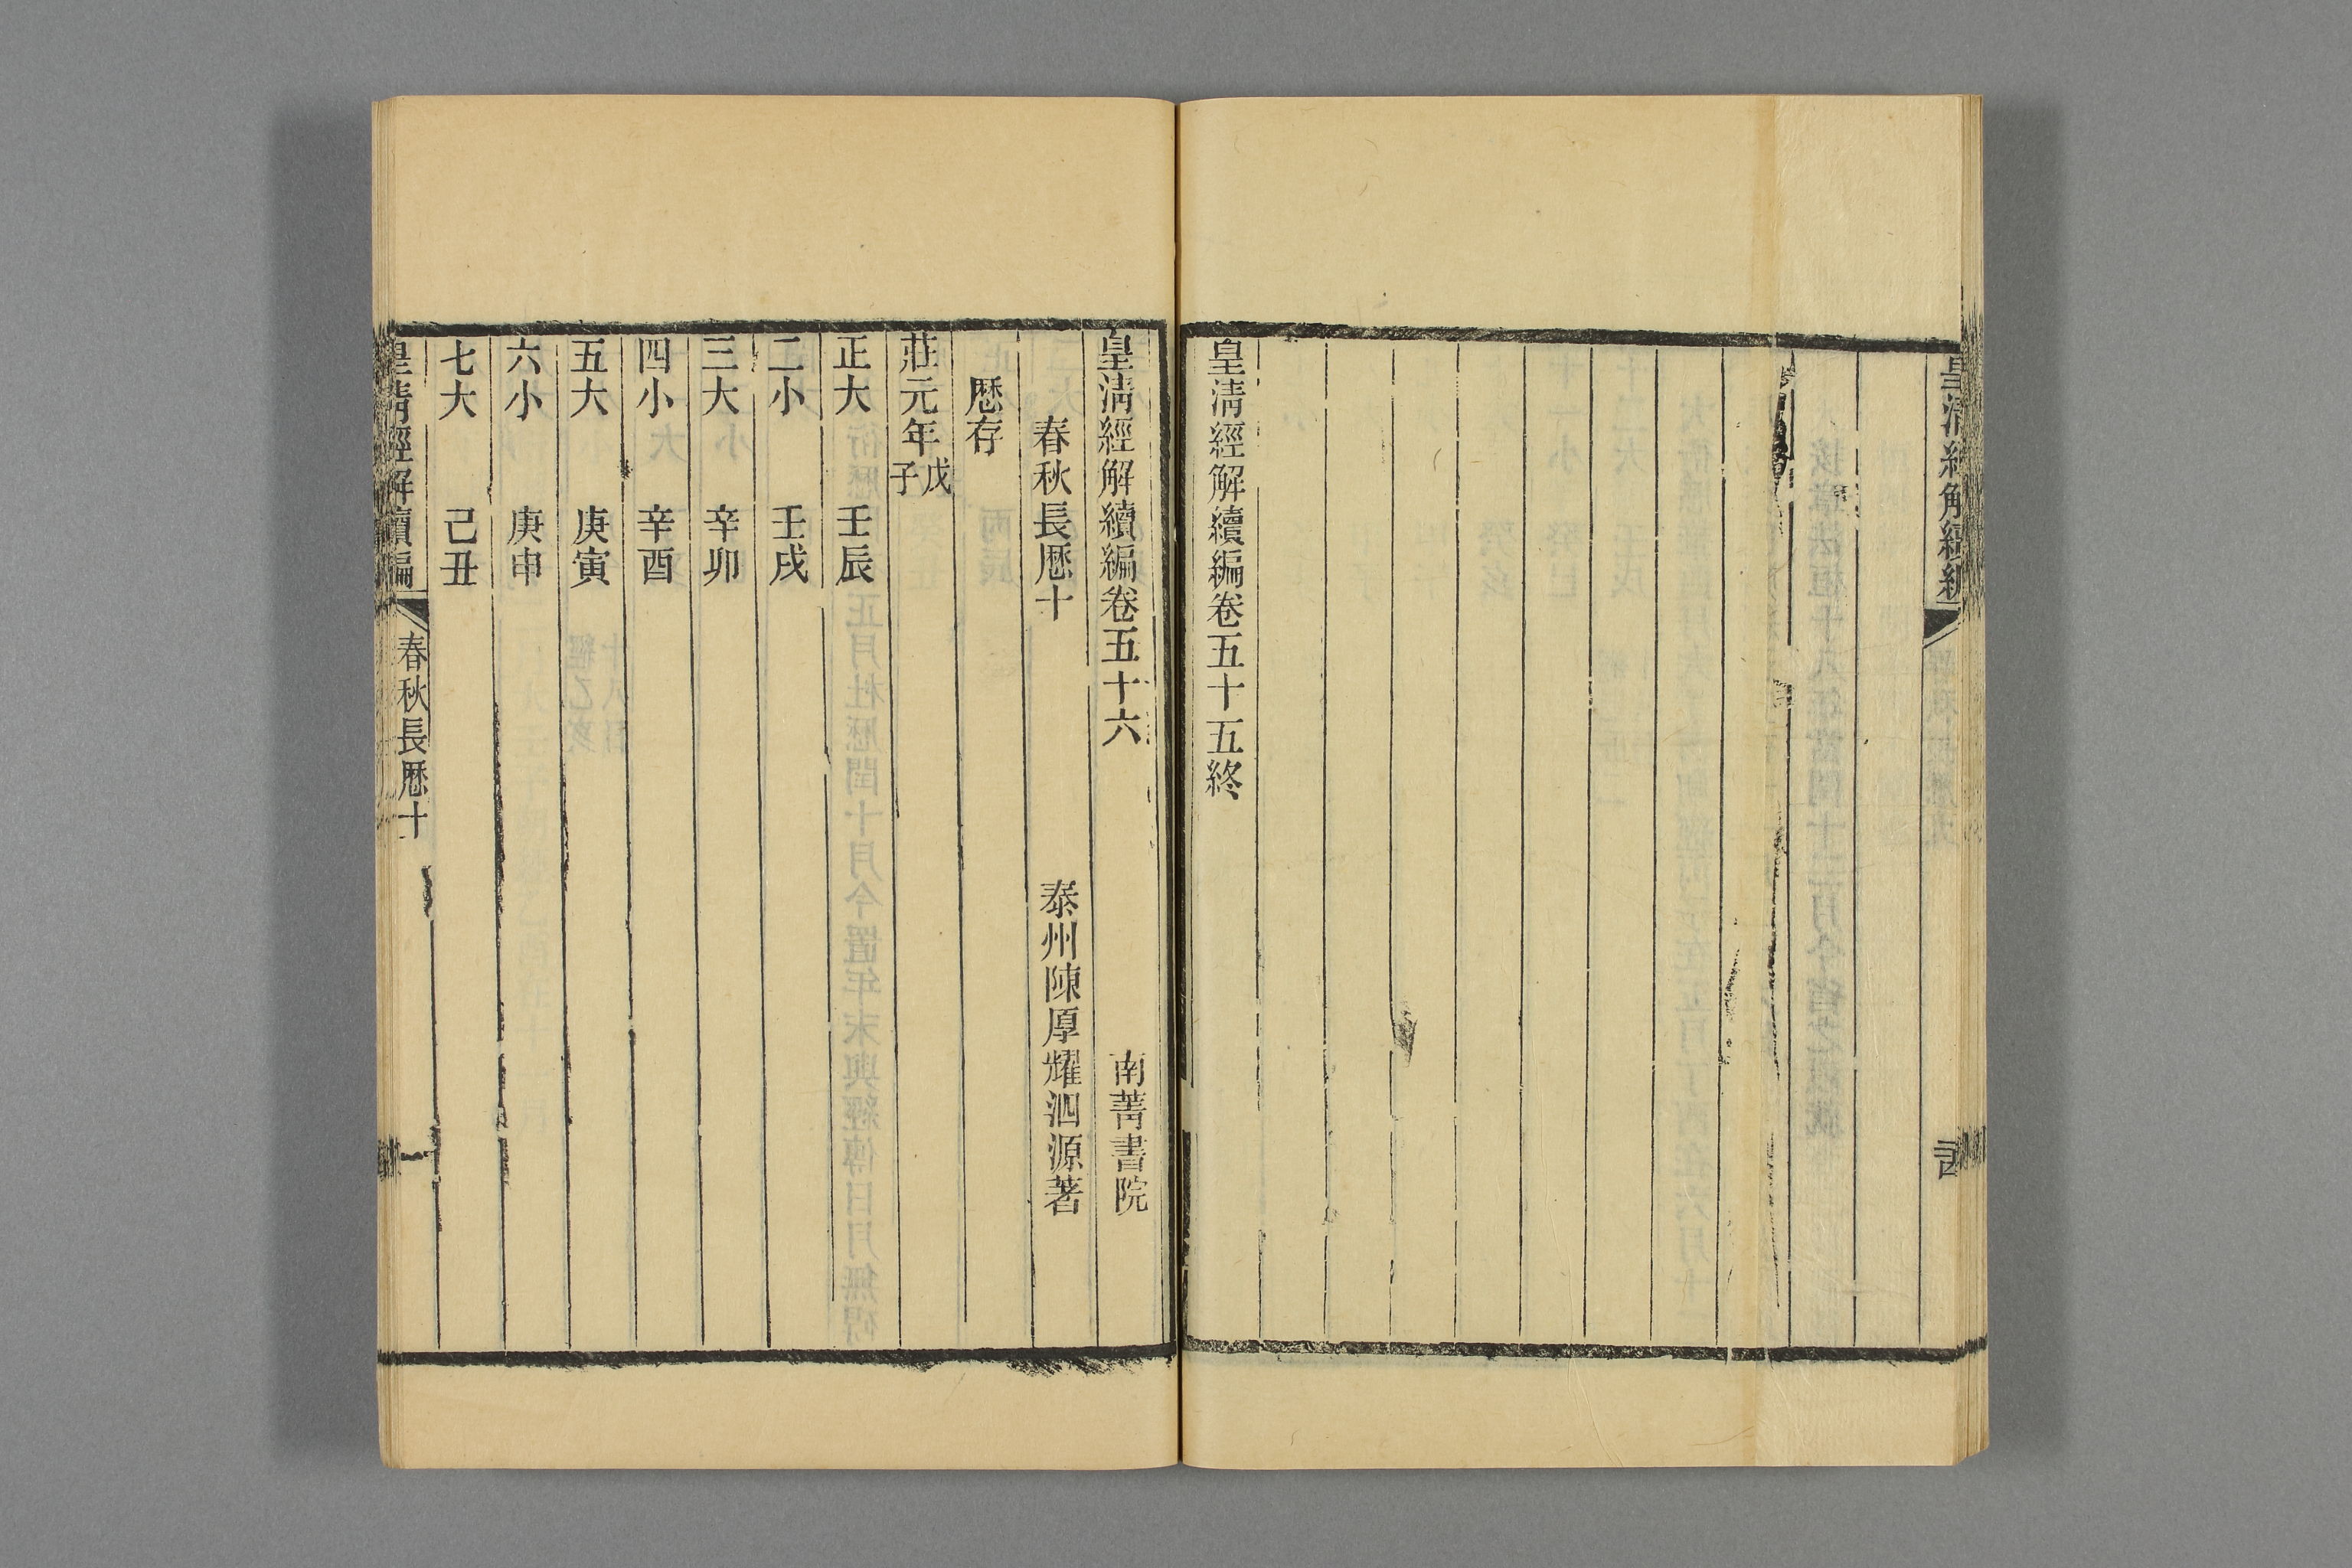 皇清經解續編
皇清經解續編卷五十五終
皇清經解續編卷五十六 南菁書院
春秋長厯十 泰州陳厚耀泗源著
厯存
莊元年戊子
正大 壬辰
二小 壬戌
三大 辛卯
四小 辛酉
五大 庚寅
六小 庚申
七大 己丑
皇清經解續編 春秋長厯十 一